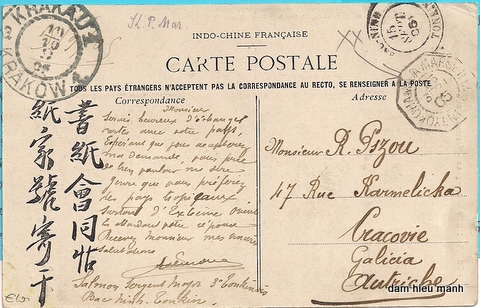 KRAKAU 1
KRAKÓW 1
St P. Mar.
XX
INDO-CHINE FRANÇAISE
CARTE POSTALE
BAC-NINH
TONKIN
TOUS LES PAYS ÉTRANGERS N'ACCEPTENT PAS LA CORRESPONDANCE AU RECTO, SE RENSEIGNER A LA POSTE
Correspondance
Adresse
Monsieur
Serais heureux d'échanger
cartes avec votre pays,
Espérant que vous accepterez
ma demande, vous prie
de bien vouloir me dire
genre que vous préférez
les pays tropicaux
surtout d'Extrême Orient
En attendant votre réponse
Recevez Monsieur mes sincères
Salutations
Salmon Sergent Major 3e Tonkinois
Bac Ninh Tonkin
書紙會同帖
紙家號寄干
Monsieur R. Pszou
47 Rue Karmelicka
Cracovie
Galicia
Autriche
dam hieu manh